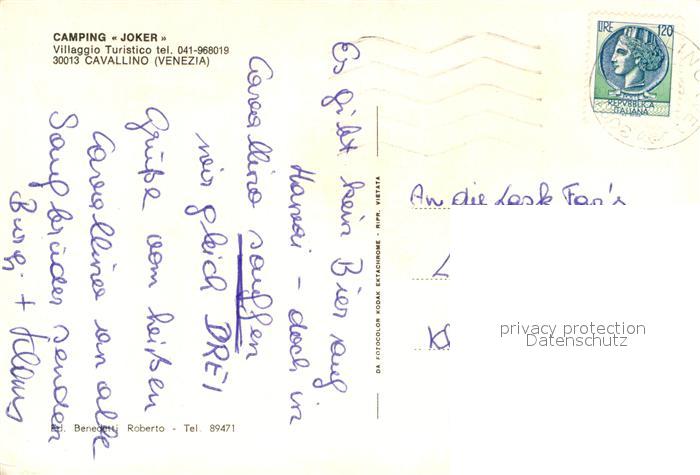 CAMPING « JOKER »
Villaggio Turistico tel. 041-968019
30013 CAVALLINO (VENEZIA)
Es gibt kein Bier auf
Hawai - doch in
Cavallino sauffen
wir gleich DREI
Grüße vom heißen
Cavallino an alle
Saufbrüder senden
+
LIRE 120
REPVBBLICA
ITALIANA
DA FOTOCOLOR KODAK EKTACHROME - RIPR. VIETATA
An die
privacy protection
Datenschutz
Ed. Benedetti Roberto - Tel. 89471